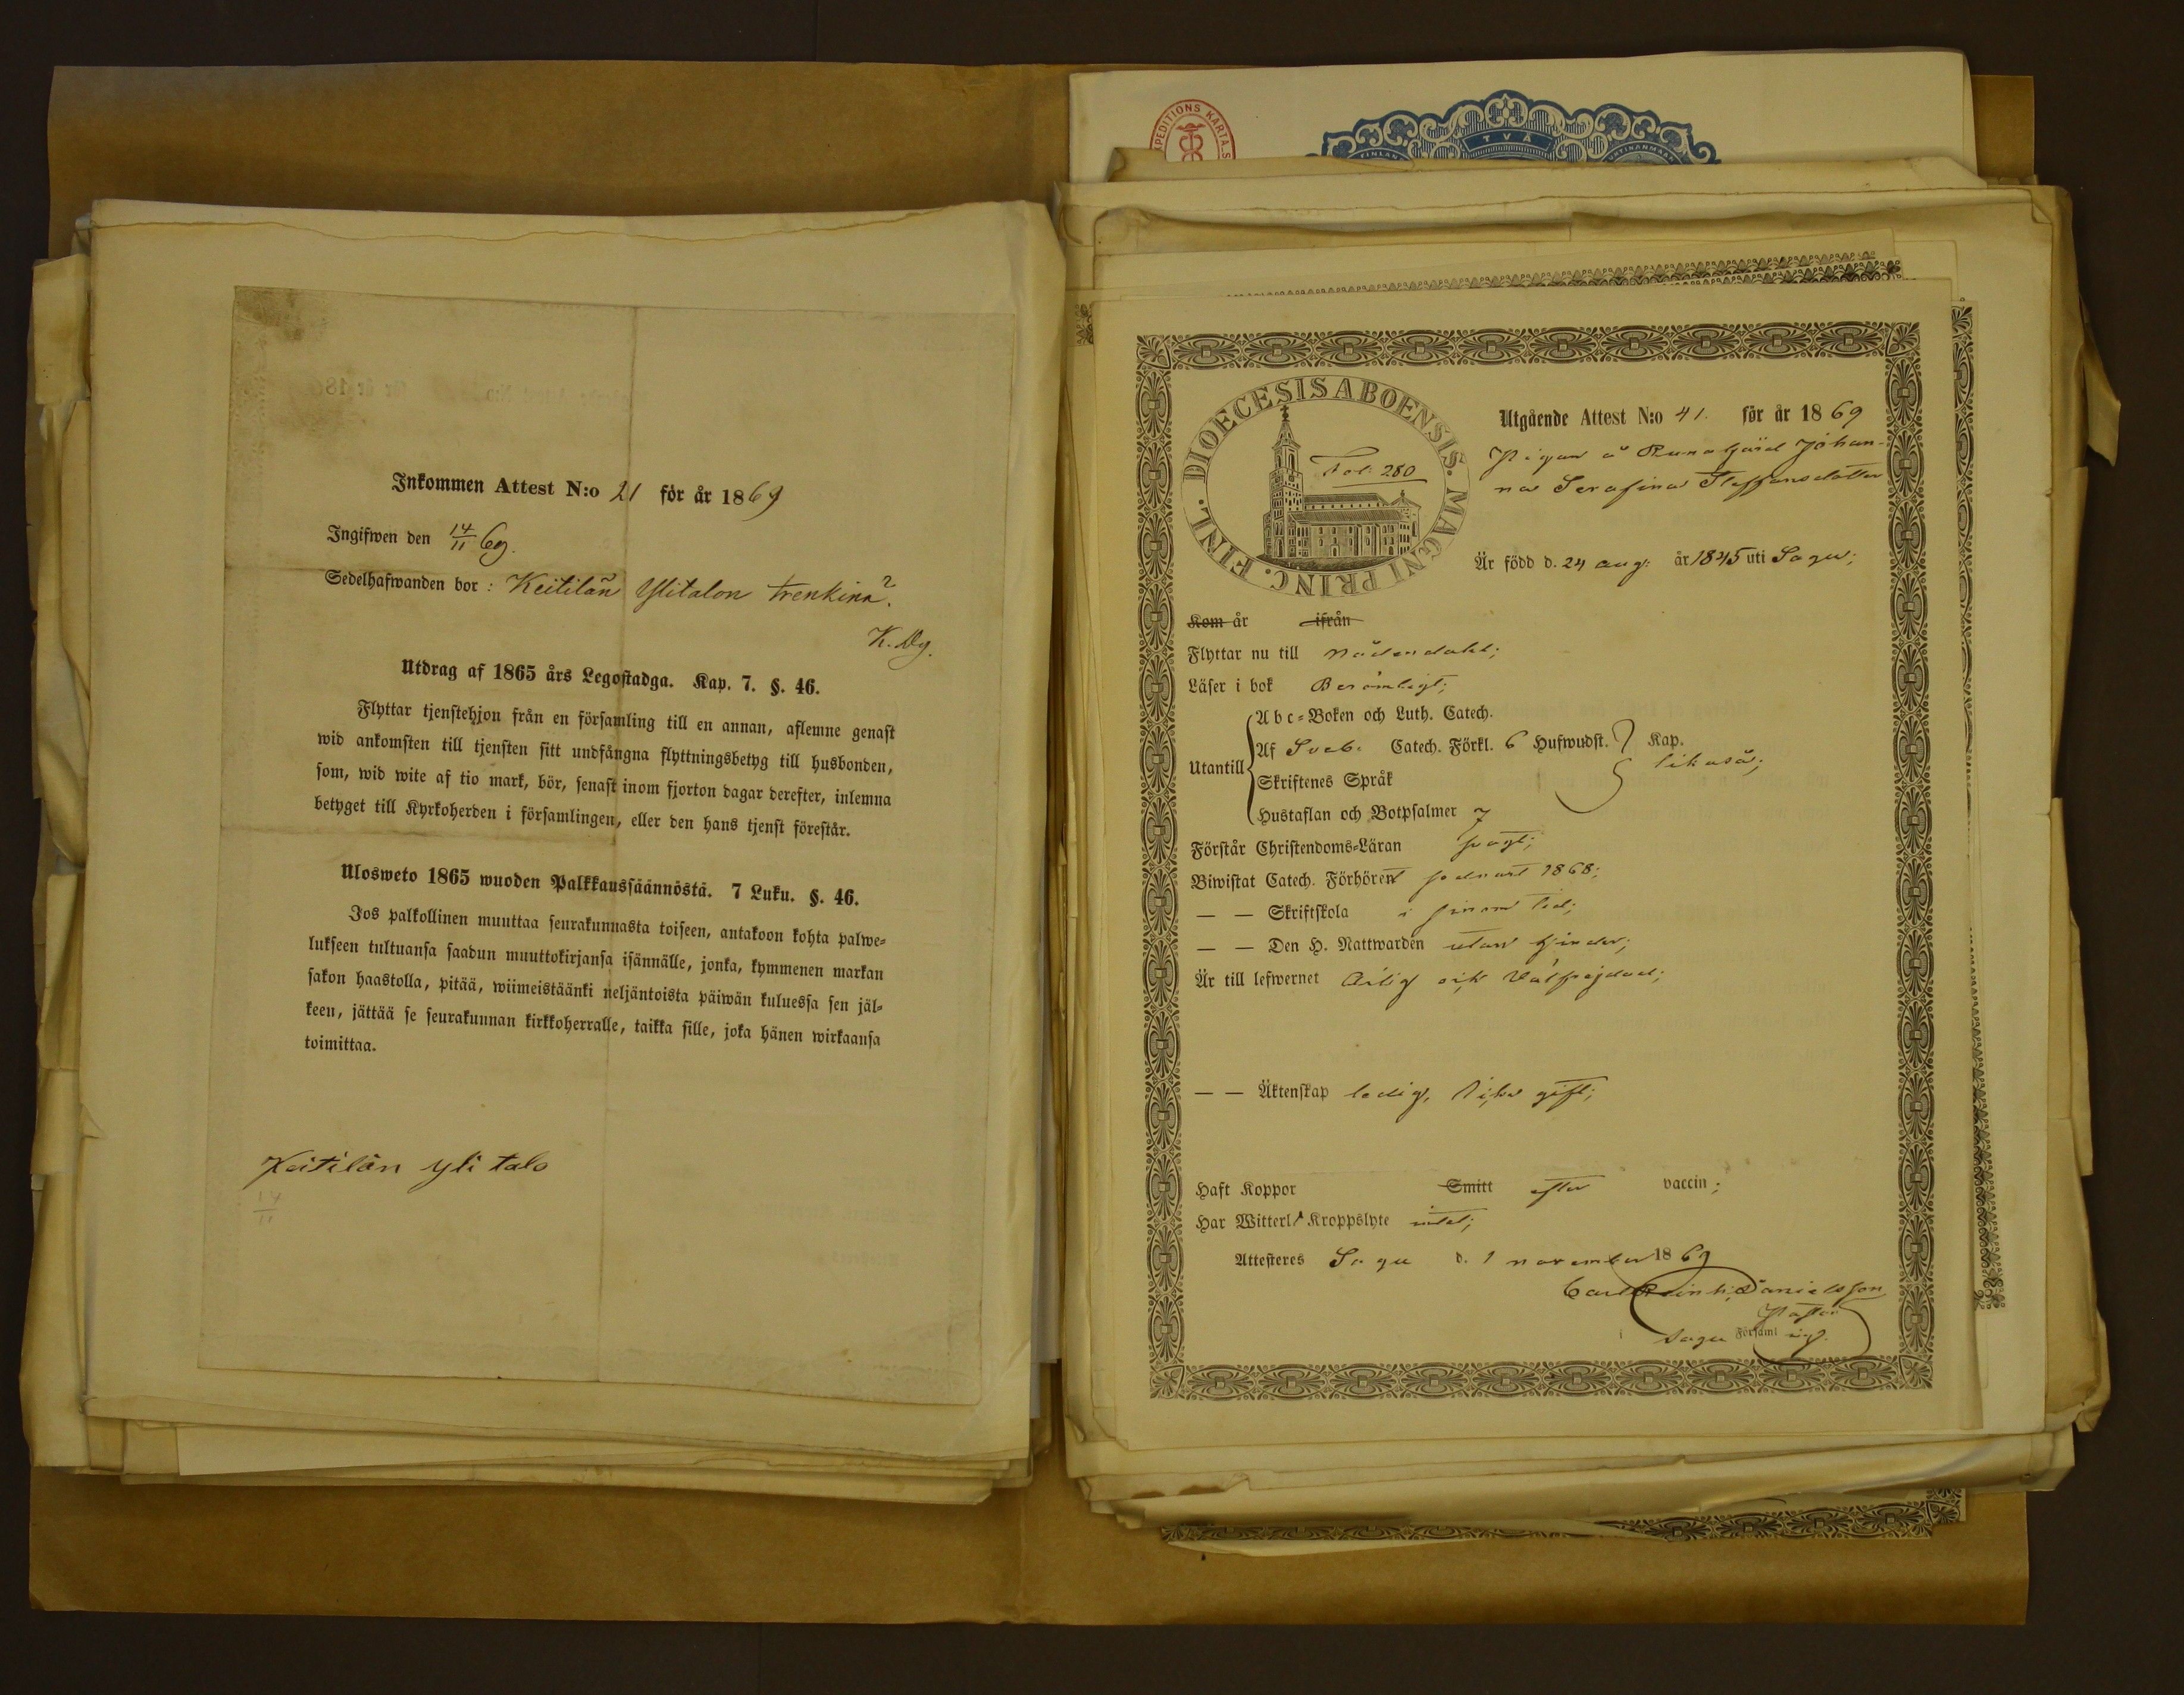 Inkommen Attest N:o 21 för år 1869
Ingifwen den 14/11 69.
Sedelhafwanden bor: Keitilän Ylitalon trenkinä?
K. Dg.
Utdrag af 1865 års Legostadga. Kap. 7. §. 46.
Flyttar tjenstehjon från en församling till en annan, aflemne genast
wid ankomsten till tjensten sitt undfångna flyttningsbetyg till husbonden,
som, wid wite af tio mark, bör, senast inom fjorton dagar derefter, inlemna
betyget till Kyrkoherden i församlingen, eller den hans tjenst förestår.
Ulosweto 1865 wuoden Palkkaussäännöstä. 7 Luku. §. 46.
Jos palkollinen muuttaa seurakunnasta toiseen, antakoon kohta palwe-
lukseen tultuansa saadun muuttokirjansa isännälle, jonka, kymmenen markan
sakon haastolla, pitää, wiimeistäänki neljäntoista päiwän kuluessa sen jäl-
keen, jättää se seurakunnan kirkkoherralle, taikka sille, joka hänen wirkaansa
toimittaa.
Keitilän yli talo
14/11
EXPEDITIONS KARTA
TVÅ
DIOECESIS ABOENSIS. MAGNI PRINC. FINL.
Fol: 280
Utgående Attest N:o 41. för år 1869
Pigan å Runagård Johan-
na Serafina Staffansdotter
Är född d. 24 aug: år 1845 uti Sagu;
Kom år ifrån
Flyttar nu till Nådendahl;
Läser i bok Berömligt;
Utantill
Abc-Boken och Luth. Catech.
Af Sveb. Catech. Förkl. 6 Hufwudst. Kap.
Skriftenes Språk likaså;
Hustaflan och Botpsalmer 7
Förstår Christendoms-Läran
Biwistat Catech. Förhören 1868;
— — Skriftskola i sinom tid;
— — Den H. Nattwarden utan hinder;
Är till lefwernet Ärlig och välfrejdad;
— — Äktenskap ledig, icke gift;
Haft Koppor Smitt efter vaccin;
Har Witterl. Kroppslyte intet;
Attesteres Sagu d. 1 november 1869
Carl Danielsson
Pastor
i Sagu Församl